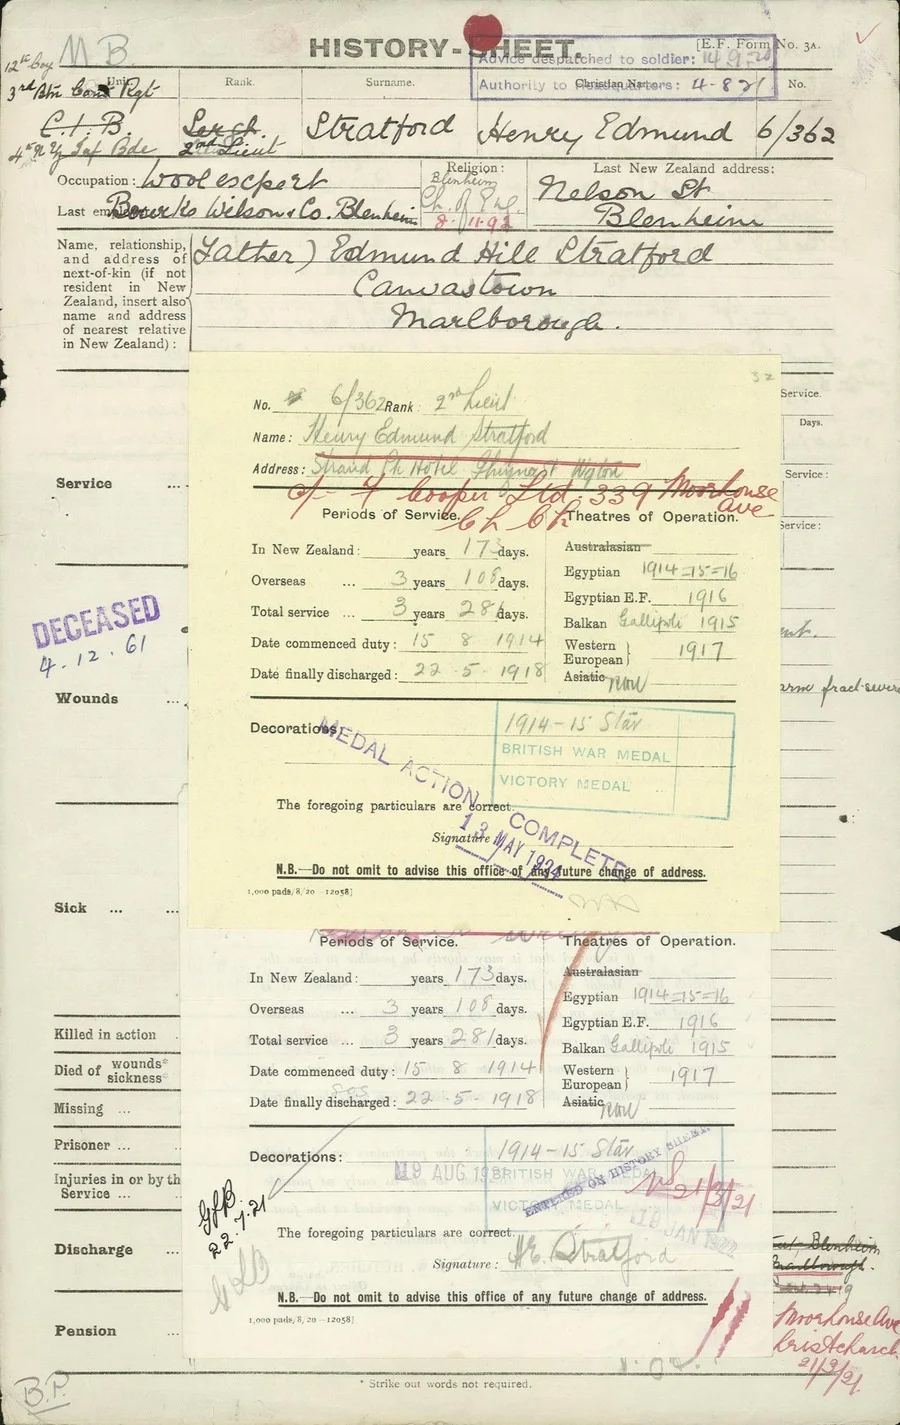 HISTORY-SHEET.
[E.F. Form No. 3A.
Advice despatched to soldier:
Authority to Headquarters: 4-8-21
N B.
12th Coy
3rd Btn Cant Rgt
Unit.
Rank.
Surname.
Christian Name
No.
C.I.B.
Sergt.
Stratford
Henry Edmund
6/362
2nd Lieut
Occupation:
Religion:
Last New Zealand address:
Blenheim
Nelson St
Last
Wilson & Co. Blenheim
Ch. of Eng.
8. 11.92
Blenheim
Name, relationship,
and address of
next-of-kin (if not
resident in New
Zealand, insert also
name and address
of nearest relative
in New Zealand):
Father) Edmund Hill Stratford
Canvastown
Marlborough.
32
No. 6/362 Rank: 2nd Lieut
Name: Henry Edmund Stratford
Address: Strand Hotel
Cooper Ltd. 339 Moorhouse
Ave
Ch Ch
Service ...
Service.
Days.
Service:
Service:
Periods of Service.
Theatres of Operation.
In New Zealand: years 173 days.
Overseas ... 3 years 108 days.
Total service ... 3 years 281 days.
Date commenced duty: 15 8 1914
Date finally discharged: 22 - 5 - 1918
Australasian
Egyptian 1914-15-16
Egyptian E.F. 1916
Balkan Gallipoli 1915
Western
European } 1917
Asiatic
DECEASED
4.12.61
Wounds ...
arm fract-severe
Decorations:
1914-15 Star
BRITISH WAR MEDAL
VICTORY MEDAL
MEDAL ACTION COMPLETED
13 MAY 1924
The foregoing particulars are correct.
Signature
N.B.—Do not omit to advise this office of any future change of address.
1,000 pads/8/20—12058]
Sick ...
Periods of Service.
Theatres of Operation.
In New Zealand: years 173 days.
Overseas ... 3 years 108 days.
Total service ... 3 years 281 days.
Date commenced duty: 15 8 1914
Date finally discharged: 22 - 5 - 1918
Australasian
Egyptian 1914-15-16
Egyptian E.F. 1916
Balkan Gallipoli 1915
Western
European } 1917
Asiatic
Killed in action
Died of wounds*
sickness*
Missing ...
Prisoner ...
Injuries in or by th
Service ...
Decorations:
1914-15 Star
BRITISH WAR MEDAL
VICTORY MEDAL
ENTERED ON HISTORY SHEET.
21/3/21
19 JAN 1922
22.7.21
The foregoing particulars are correct.
Signature: HE. Stratford
N.B.—Do not omit to advise this office of any future change of address.
1,000 pads/8/20—12058]
Discharge ...
Blenheim
Marlborough.
Moorhouse Ave
Christchurch
21/3/21
Pension ...
B.P.
* Strike out words not required.